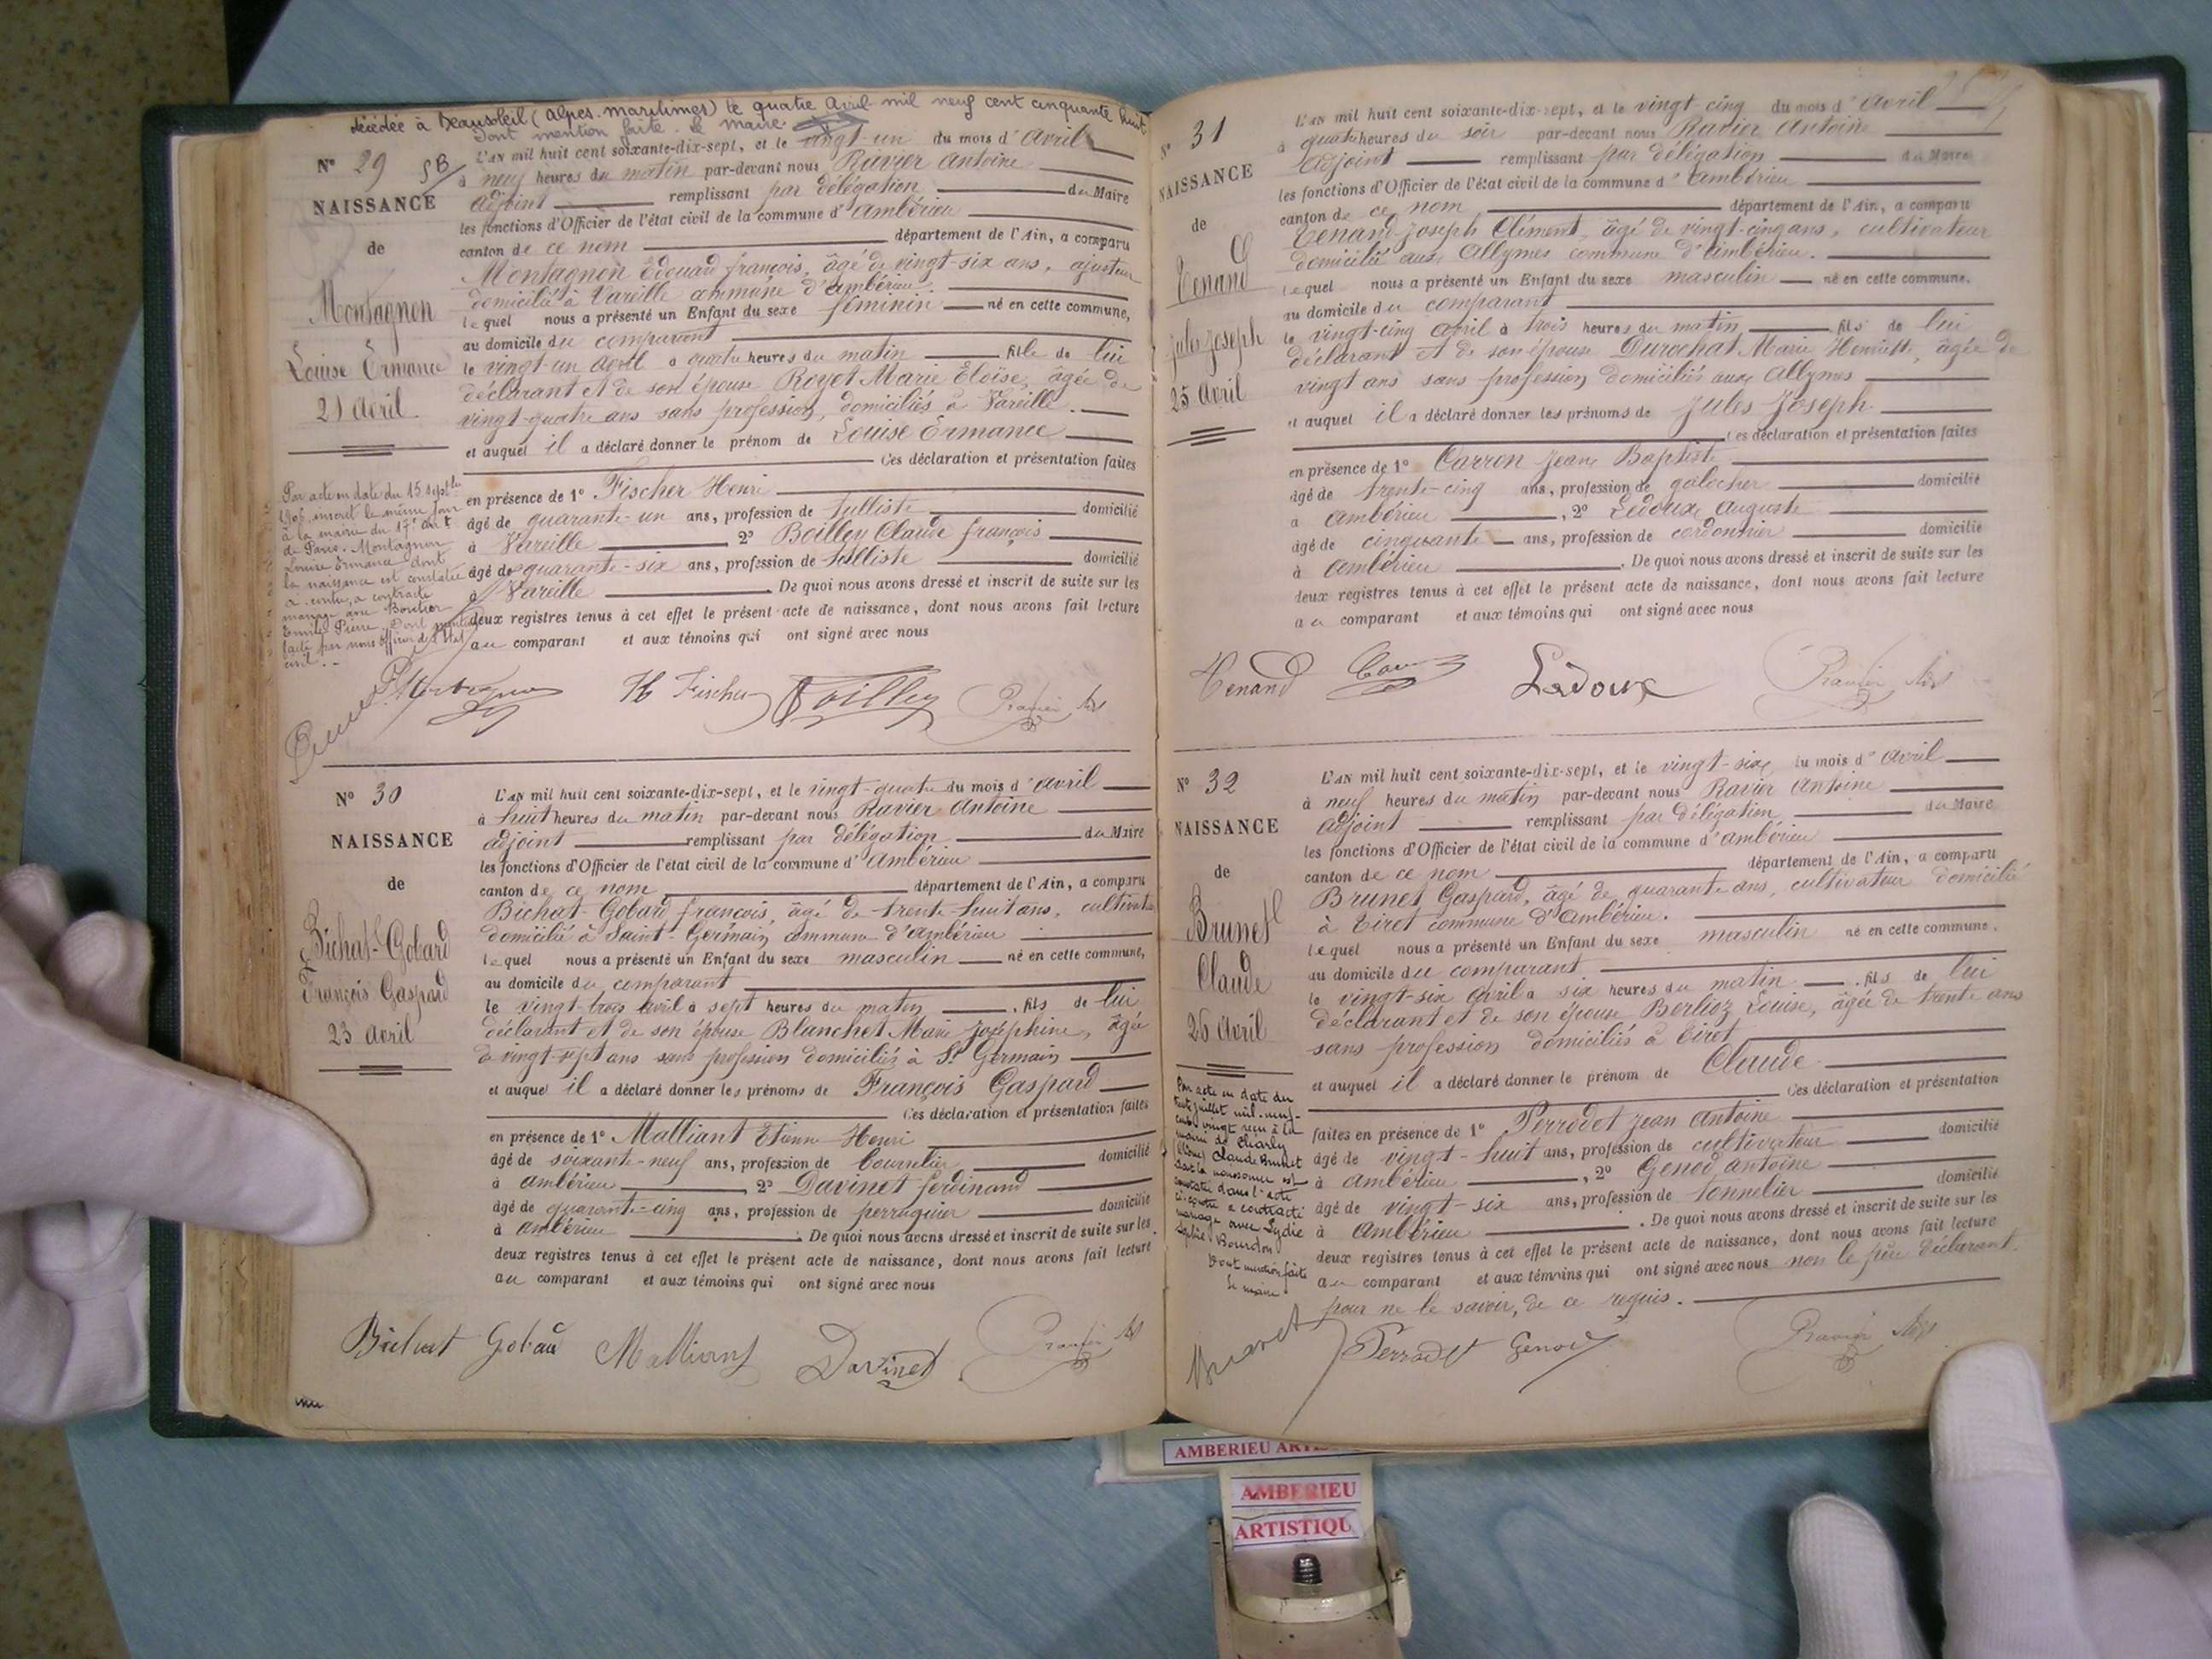 décédée à Beausoleil (Alpes-maritimes) le quatre Avril mil neuf cent cinquante huit
dont mention faite. Le maire
N° 29
NAISSANCE
de
Montagnon
Louise Ermance
21 Avril
L'AN mil huit cent soixante-dix-sept, et le vingt-un du mois d'Avril
à neuf heures du matin par-devant nous Ravier Antoine
adjoint remplissant par délégation du Maire
les fonctions d'Officier de l'état civil de la commune d'Ambérieu
canton de ce nom département de l'Ain, a comparu
Montagnon Edouard françois, âgé de vingt-six ans, ajusteur
domicilié à Vareille commune d'Ambérieu
lequel nous a présenté un Enfant du sexe féminin né en cette commune,
au domicile du comparant
le vingt-un avril à quatre heures du matin fille de lui
déclarant et de son épouse Royet Marie Eloïse, âgée de
vingt-quatre ans sans profession, domiciliés à Vareille.
et auquel il a déclaré donner le prénom de Louise Ermance
Ces déclaration et présentation faites
en présence de 1° Fischer Henri
âgé de quarante-un ans, profession de tulliste domicilié
à Vareille 2° Boilley Claude françois
âgé de quarante-six ans, profession de tulliste domicilié
à Vareille De quoi nous avons dressé et inscrit de suite sur les
deux registres tenus à cet effet le présent acte de naissance, dont nous avons fait lecture
au comparant et aux témoins qui ont signé avec nous
Par acte en date du 15 septbre
inscrit le même jour
à la mairie du 17e art
de Paris. Montagnon
Louise Ermance dont
la naissance est constatée
ci-contre, a contracté
mariage avec
Emile Pierre. Dont mention
faite par nous officier de l'état
civil.
H Fischer Boilley Ravier Adj
N° 30
NAISSANCE
de
Bichat-Gobard
François Gaspard
23 Avril
L'AN mil huit cent soixante-dix-sept, et le vingt-quatre du mois d'avril
à huit heures du matin par-devant nous Ravier Antoine
adjoint remplissant par délégation du Maire
les fonctions d'Officier de l'état civil de la commune d'Ambérieu
canton de ce nom département de l'Ain, a comparu
Bichat-Gobard françois, âgé de trente-huit ans, cultivate
domicilié à Saint-Germain commune d'Ambérieu
lequel nous a présenté un Enfant du sexe masculin né en cette commune,
au domicile du comparant
le vingt-trois avril à sept heures du matin, fils de lui
déclarant et de son épouse Blanchet Marie Joséphine, âgée
de vingt-sept ans sans profession domiciliés à St Germain
et auquel il a déclaré donner les prénoms de François Gaspard
Ces déclaration et présentation faites
en présence de 1° Malliant Etienne Henri
âgé de soixante-neuf ans, profession de bourrelier domicilié
à Ambérieu, 2° Davinet ferdinand
âgé de quarante-cinq ans, profession de perruquier domicilié
à Ambérieu. De quoi nous avons dressé et inscrit de suite sur les
deux registres tenus à cet effet le présent acte de naissance, dont nous avons fait lecture
au comparant et aux témoins qui ont signé avec nous
Bichat Gobard Malliant Davinet Ravier Adj
N° 31
NAISSANCE
de
Tenand
Jules Joseph
25 Avril
L'AN mil huit cent soixante-dix-sept, et le vingt-cinq du mois d'Avril
à quatre heures du soir par-devant nous Ravier Antoine
adjoint remplissant par délégation du Maire
les fonctions d'Officier de l'état civil de la commune d'Ambérieu
canton de ce nom département de l'Ain, a comparu
Tenand Joseph Clément, âgé de vingt-cinq ans, cultivateur
domicilié aux Allymes commune d'Ambérieu.
lequel nous a présenté un Enfant du sexe masculin né en cette commune,
au domicile du comparant
le vingt-cinq avril à trois heures du matin fils de lui
déclarant et de son épouse Durochat Marie Henriette, âgée de
vingt ans sans profession domiciliés aux Allymes
et auquel il a déclaré donner les prénoms de Jules Joseph
Ces déclaration et présentation faites
en présence de 1° Carron Jean Baptiste
âgé de trente-cinq ans, profession de galocher domicilié
à Ambérieu, 2° Ledoux Auguste
âgé de cinquante ans, profession de cordonnier domicilié
à Ambérieu. De quoi nous avons dressé et inscrit de suite sur les
deux registres tenus à cet effet le présent acte de naissance, dont nous avons fait lecture
au comparant et aux témoins qui ont signé avec nous
Tenand Ladoux Ravier Adj
N° 32
NAISSANCE
de
Brunet
Claude
26 Avril
L'AN mil huit cent soixante-dix-sept, et le vingt-six du mois d'avril
à neuf heures du matin par-devant nous Ravier Antoine
adjoint remplissant par délégation du Maire
les fonctions d'Officier de l'état civil de la commune d'Ambérieu
canton de ce nom département de l'Ain, a comparu
Brunet Gaspard, âgé de quarante ans, cultivateur domicilié
à Tiret commune d'Ambérieu.
lequel nous a présenté un Enfant du sexe masculin né en cette commune,
au domicile du comparant
le vingt-six avril à six heures du matin. fils de lui
déclarant et de son épouse Berlioz Louise, âgée de trente ans
sans profession domiciliés à Tiret
et auquel il a déclaré donner le prénom de Claude
Ces déclaration et présentation
faites en présence de 1° Perrodet Jean Antoine
âgé de vingt-huit ans, profession de cultivateur domicilié
à Ambérieu, 2° Genod Antoine
âgé de vingt-six ans, profession de tonnelier domicilié
à Ambérieu. De quoi nous avons dressé et inscrit de suite sur les
deux registres tenus à cet effet le présent acte de naissance, dont nous avons fait lecture
au comparant et aux témoins qui ont signé avec nous non le père déclarant
pour ne le savoir, de ce requis.
Par acte en date du
trente juillet mil-neuf-
cent vingt reçu à la
mairie de Charly
Claude Brunet
dont la naissance est
constatée dans l'acte
ci-contre a contracté
mariage avec Lydie
Sophie Bourdon
Dont mention faite
Le maire
Perrodet Genod Ravier Adj
AMBERIEU
AMBERIEU
ARTISTIQU